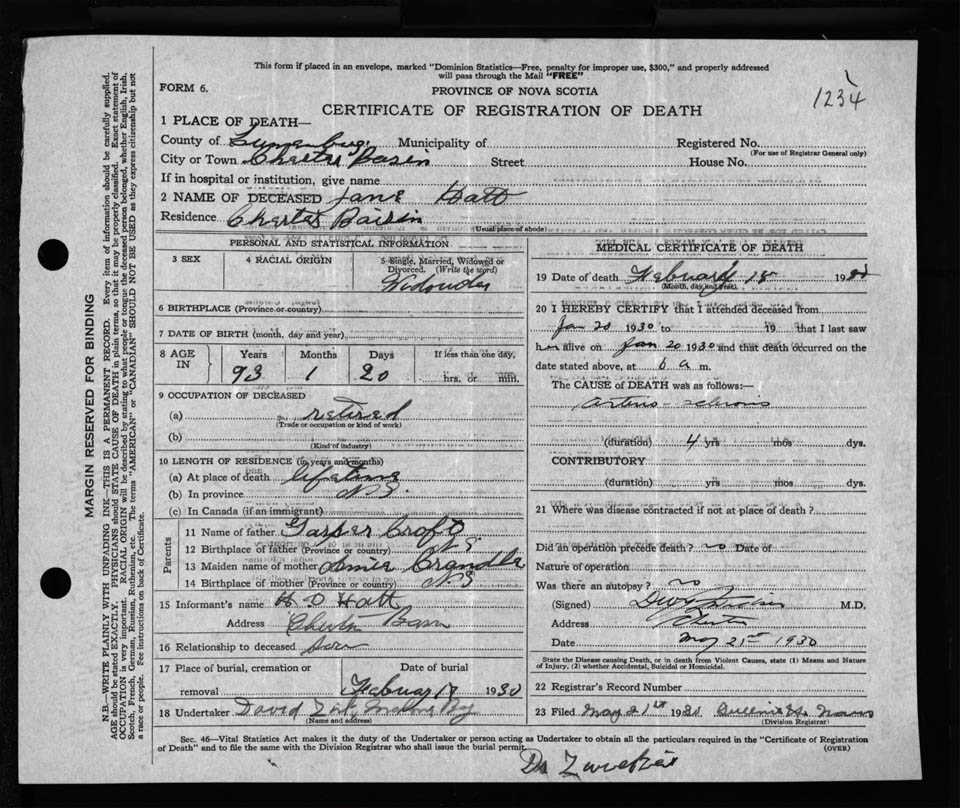 This form if placed in an envelope, marked "Dominion Statistics—Free, penalty for improper use, $300," and properly addressed
will pass through the Mail "FREE"
FORM 6.
PROVINCE OF NOVA SCOTIA
1234
CERTIFICATE OF REGISTRATION OF DEATH
1 PLACE OF DEATH—
County of Lunenburg Municipality of Registered No.
(For use of Registrar General only)
City or Town Chester Basin Street House No.
If in hospital or institution, give name
2 NAME OF DECEASED Jane Hatt
Residence Chester Baisin
(Usual place of abode)
PERSONAL AND STATISTICAL INFORMATION
3 SEX
4 RACIAL ORIGIN
5 Single, Married, Widowed or
Divorced. (Write the word)
6 BIRTHPLACE (Province or country)
7 DATE OF BIRTH (month, day and year)
8 AGE IN
Years Months Days If less than one day,
93 1 20 hrs. or min.
9 OCCUPATION OF DECEASED
(a) retired
(Trade or occupation or kind of work)
(b)
(Kind of industry)
10 LENGTH OF RESIDENCE (in years and months)
(a) At place of death lifetime
(b) In province N.S.
(c) In Canada (if an immigrant)
Parents
11 Name of father Gasper Croft
12 Birthplace of father (Province or country) N.S
13 Maiden name of mother
14 Birthplace of mother (Province or country) N.S
15 Informant's name H D Hatt
Address Chester Basin
16 Relationship to deceased Son
17 Place of burial, cremation or
removal
Date of burial
Febuary 17 1930
18 Undertaker David
(Name and address)
MEDICAL CERTIFICATE OF DEATH
19 Date of death Febuary 15 1930
(Month, day and year)
20 I HEREBY CERTIFY that I attended deceased from
Jan 20 1930 to 19 that I last saw
h alive on Jan 20 1930 and that death occurred on the
date stated above, at 6 a m.
The CAUSE of DEATH was as follows:—
Arterio-sclerosis
(duration) 4 yrs mos dys.
CONTRIBUTORY
(duration) yrs mos dys.
21 Where was disease contracted if not at place of death?
Did an operation precede death? no Date of
Nature of operation
Was there an autopsy? no
(Signed) M.D.
Address Chester
Date May 21st 1930
State the Disease causing Death, or in death from Violent Causes, state (1) Means and Nature
of Injury, (2) whether Accidental, Suicidal or Homicidal.
22 Registrar's Record Number
23 Filed May 21st 1930
(Division Registrar)
Sec. 46—Vital Statistics Act makes it the duty of the Undertaker or person acting as Undertaker to obtain all the particulars required in the "Certificate of Registration
of Death" and to file the same with the Division Registrar who shall issue the burial permit.
(OVER)
MARGIN RESERVED FOR BINDING
N.B.—WRITE PLAINLY WITH UNFADING INK—THIS IS A PERMANENT RECORD. Every item of information should be carefully supplied.
AGE should be stated EXACTLY. PHYSICIANS should STATE CAUSE OF DEATH in plain terms, so that it may be properly classified. Exact statement of
OCCUPATION is very important. RACIAL ORIGIN will be described by stating to what people or tongue the deceased person belonged, whether English, Irish,
Scotch, French, German, Russian, Ruthenian, etc. The terms "AMERICAN" or "CANADIAN" SHOULD NOT BE USED as they express citizenship but not
a race or people. See instructions on back of Certificate.